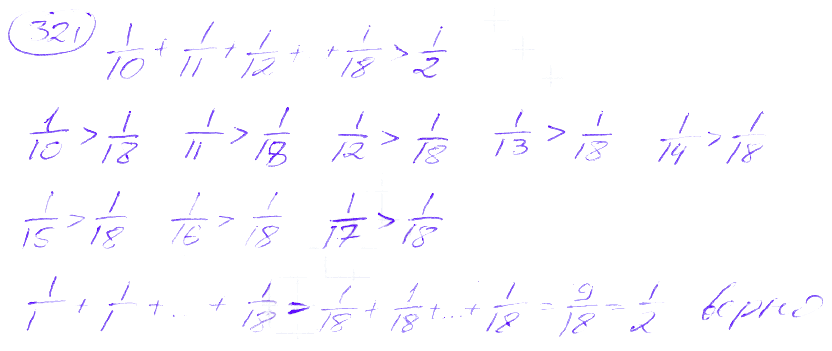 321) 1/10 + 1/11 + 1/12 + + 1/18 > 1/2
1/10 > 1/18 1/11 > 1/18 1/12 > 1/18 1/13 > 1/18 1/14 > 1/18
1/15 > 1/18 1/16 > 1/18 1/17 > 1/18
1/1 + 1/1 + ... + 1/18 > 1/18 + 1/18 + ... + 1/18 = 9/18 = 1/2 верно